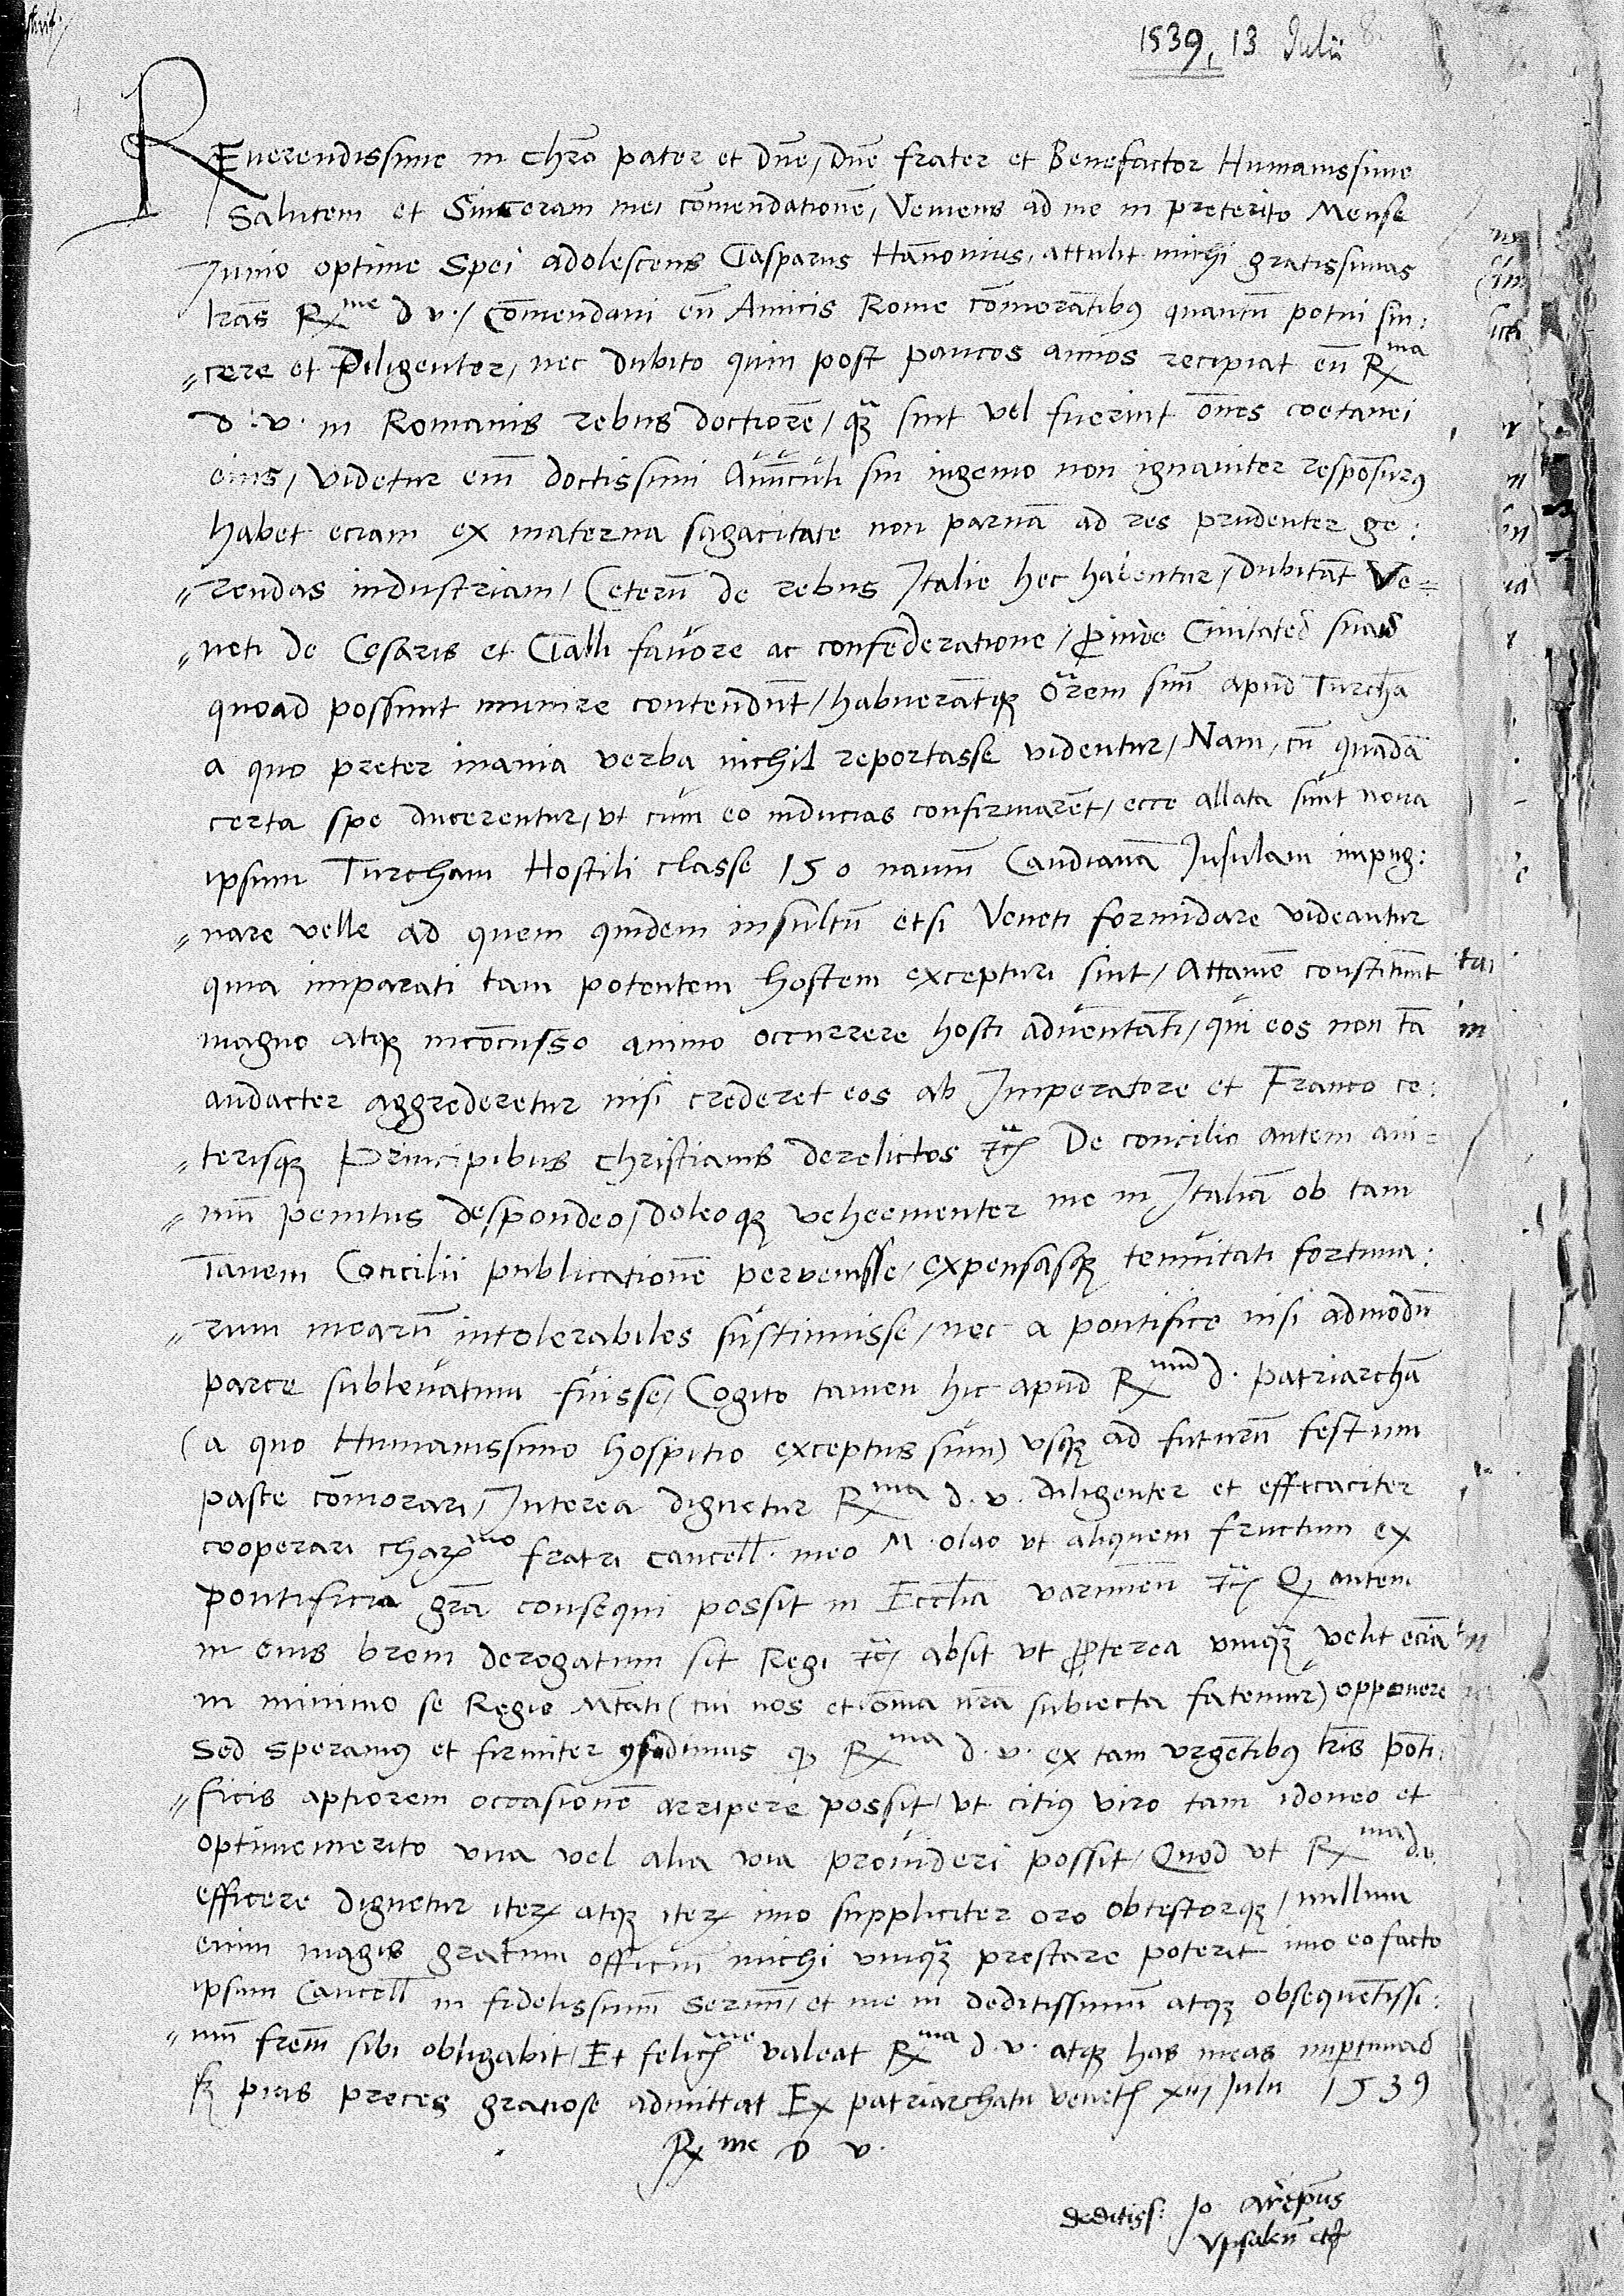 1539, 13 Julii
REuerendissime in chro pater et dne, dne frater et Benefactor Humanissime
Salutem et Sinceram mei comendatione, Veniens ad me in preterito Mense
Junio optime Spei adolescens Casparus Hannouius, attulit michi gratissimas
lras Rme d v./ comendaui eu Amicis Rome comorantibus quantu potui sin:
cere et Diligenter, nec dubito quin post paucos annos recipiat eu Rma
d. v. in Romanis rebus doctiore, quam sint vel fuerint omes coetanei
eius, videtur eim doctissimi Auunculi sui ingenio non ignauiter responsurus
habet eciam ex materna sagacitate non parua ad res prudenter ge:
rendas industriam, Ceteru de rebus Italie hec habentur, dubitat Ve=
neti de Cesaris et Galli fauore ac confederatione, proinde Ciuitates suas
quoad possunt munire contendunt, habuerantque Orem suu apud Turcha
a quo preter inania verba nichil reportasse videntur, Nam, cu quada
certa spe ducerentur, vt cum eo inducias confirmaret, ecce allata sunt noua
ipsum Turcham Hostili classe 150 nauium Candiana Insulam impug:
nare velle ad quem quidem insultu etsi Veneti formidare videantur
quia imparati tam potentem hostem excepturi sint, Attame constituunt
magno atque inconcusso animo occurrere hosti aduentati, qui eos non ta
audacter aggrederetur nisi crederet eos ab Imperatore et Franco ce:
terisque Principibus christianis derelictos etc De concilio autem ani=
mu penitus despondeo, doleoque veheementer me in Italia ob tam
Ianem Concilii publicatione peruenisse, expensasque tenuitati fortuna:
rum mearu intolerabiles sustinuisse, nec a pontifice nisi admodu
parce subleuatum fuisse, Cogito tamen hic apud Rmum d. patriarcha
(a quo Humanissimo hospitio exceptus sum) vsque ad futuru festum
pasce comorari, Interea dignetur Rma d. v. diligenter et efficaciter
cooperari charmo fratri cancell. meo M. olao vt aliquem fructum ex
pontificia gra consequi possit in Ecclia varmien etc Q autem
in eius breui derogatum sit Regi etc absit vt propterea vnquam velit ecia
in minimo se Regie Mtati (cui nos et omia nra subiecta fatemur) opponere
Sed Speramus et firmiter confidimus quod Rma d. v. ex tam vrgetibus lris poti:
ficis aptiorem occasione arripere possit, vt citius viro tam idoneo et
optimemerito vna vel alia via prouideri possit, Quod vt Rma d.v.
efficere dignetur iterum atque iterum imo suppliciter oro obtestorque, nullum
enim magis gratum officiu michi vnquam prestare poterit imo eo facto
ipsum Cancell in fidelissimu seruu, et me in deditissimum atque obsequetissi:
mu frem sibi obligabit, Et felicme valeat Rma d. v. atque has meas
pias preces gratiose admittat Ex patriarchatu venet xiij Julii 1539
Rme D v.
deditiss: Jo archiepus
Vpsalen etc